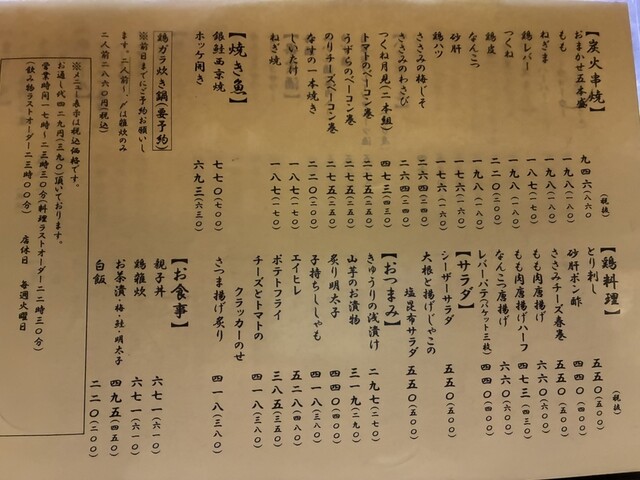 【炭火串焼】 (税抜)
おまかせ五本盛 九四六(八六〇)
もも 一九八(一八〇)
ねぎま 一九八(一八〇)
鶏レバー 一八七(一七〇)
つくね 一九八(一八〇)
鶏皮 二二〇(二〇〇)
なんこつ 一九八(一八〇)
砂肝 一七六(一六〇)
鶏ハツ 一七六(一六〇)
ささみの梅じそ 二六四(二四〇)
ささみのわさび 二六四(二四〇)
つくね月見(二本組) 四七三(四三〇)
トマトのベーコン巻 二七五(二五〇)
うずらのベーコン巻 二七五(二五〇)
のりチーズベーコン巻 二七五(二五〇)
なすの一本焼き 二二〇(二〇〇)
しいたけ 一八七(一七〇)
ねぎ焼 一八七(一七〇)
【焼き魚】
銀鮭西京焼 七七〇(七〇〇)
ホッケ開き 六九三(六三〇)
鶏ガラ炊き鍋(要予約)
※前日までにご予約お願いし
ます。二人前〜、〆は雑炊のみ
二人前二八六〇円(税込)
【鶏料理】 (税抜)
とり刺し 五五〇(五〇〇)
砂肝ポン酢 四四〇(四〇〇)
ささみチーズ春巻 五五〇(五〇〇)
もも肉唐揚げ 六六〇(六〇〇)
もも肉唐揚げハーフ 四七三(四三〇)
なんこつ唐揚げ 六六〇(六〇〇)
レバーパテ(バケット三枚) 四四〇(四〇〇)
【サラダ】
シーザーサラダ 五五〇(五〇〇)
大根と揚げじゃこの
塩昆布サラダ 五五〇(五〇〇)
【おつまみ】
きゅうりの浅漬け 二九七(二七〇)
山芋のお漬物 三一九(二九〇)
炙り明太子 四四〇(四〇〇)
子持ちししゃも 四一八(三八〇)
エイヒレ 五二八(四八〇)
ポテトフライ 三八五(三五〇)
チーズとトマトの
クラッカーのせ 四一八(三八〇)
さつま揚げ炙り 四一八(三八〇)
【お食事】
親子丼 六七一(六一〇)
鶏雑炊 六七一(六一〇)
お茶漬・梅・鮭・明太子 四九五(四五〇)
白飯 二二〇(二〇〇)
※メニュー表示は税込価格です。
お通し代四二九円(三九〇)頂いております。
営業時間一七時〜二三時三〇分(料理ラストオーダー二二時三〇分)
(飲み物ラストオーダー二三時〇〇分) 店休日 毎週火曜日